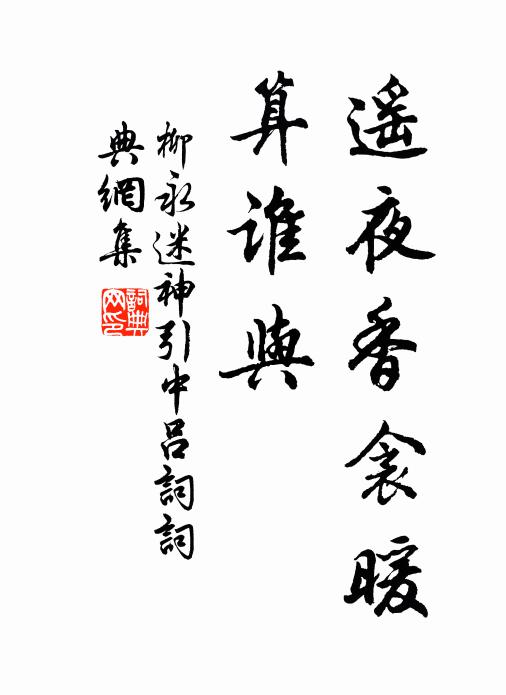 遥夜香衾暖
算誰與
柳永迷神引中呂詞詞
典網集
詞典
网印